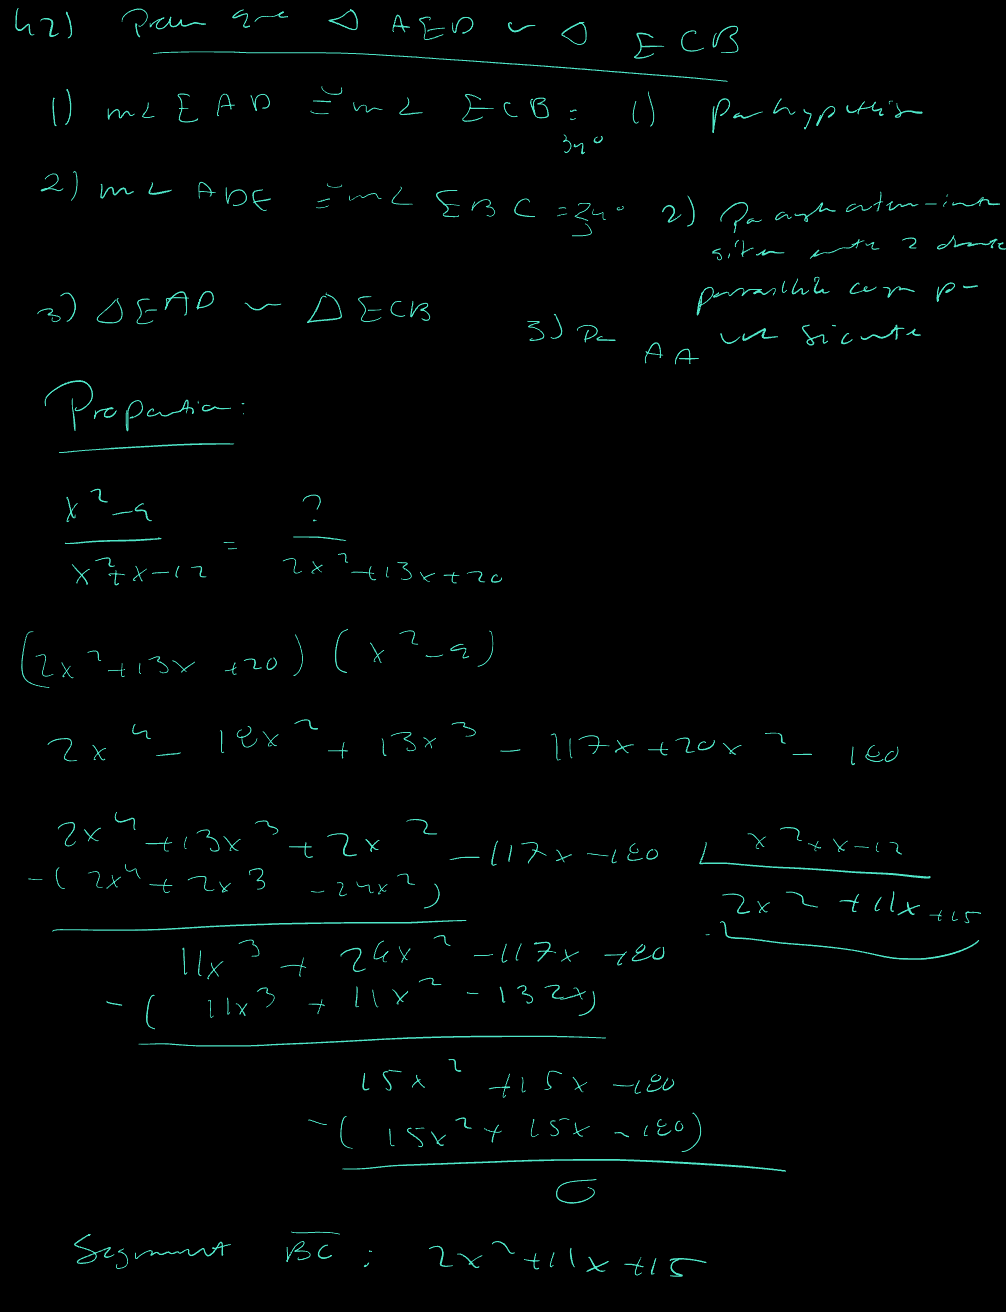 42) Prouver que △ AED ~ △ ECB
1) m∠ EAD ≅ m∠ ECB = 34° 1) Par hypothèse
2) m∠ ADE ≅ m∠ EBC = 34° 2) Par angles alternes-internes
situés entre 2 droites
parallèles coupées par
une sécante
3) △EAD ~ △ECB 3) Par AA
Proportion:
x²-9 / x²+x-12 = ? / 2x²+13x+20
(2x²+13x+20)(x²-9)
2x⁴ - 18x² + 13x³ - 117x + 20x² - 180
2x⁴ + 13x³ + 2x² - 117x - 180 | x²+x-12
-(2x⁴ + 2x³ - 24x²) 2x² + 11x + 15
11x³ + 26x² - 117x - 180
-(11x³ + 11x² - 132x)
15x² + 15x - 180
-(15x² + 15x - 180)
0
Segment BC : 2x² + 11x + 15